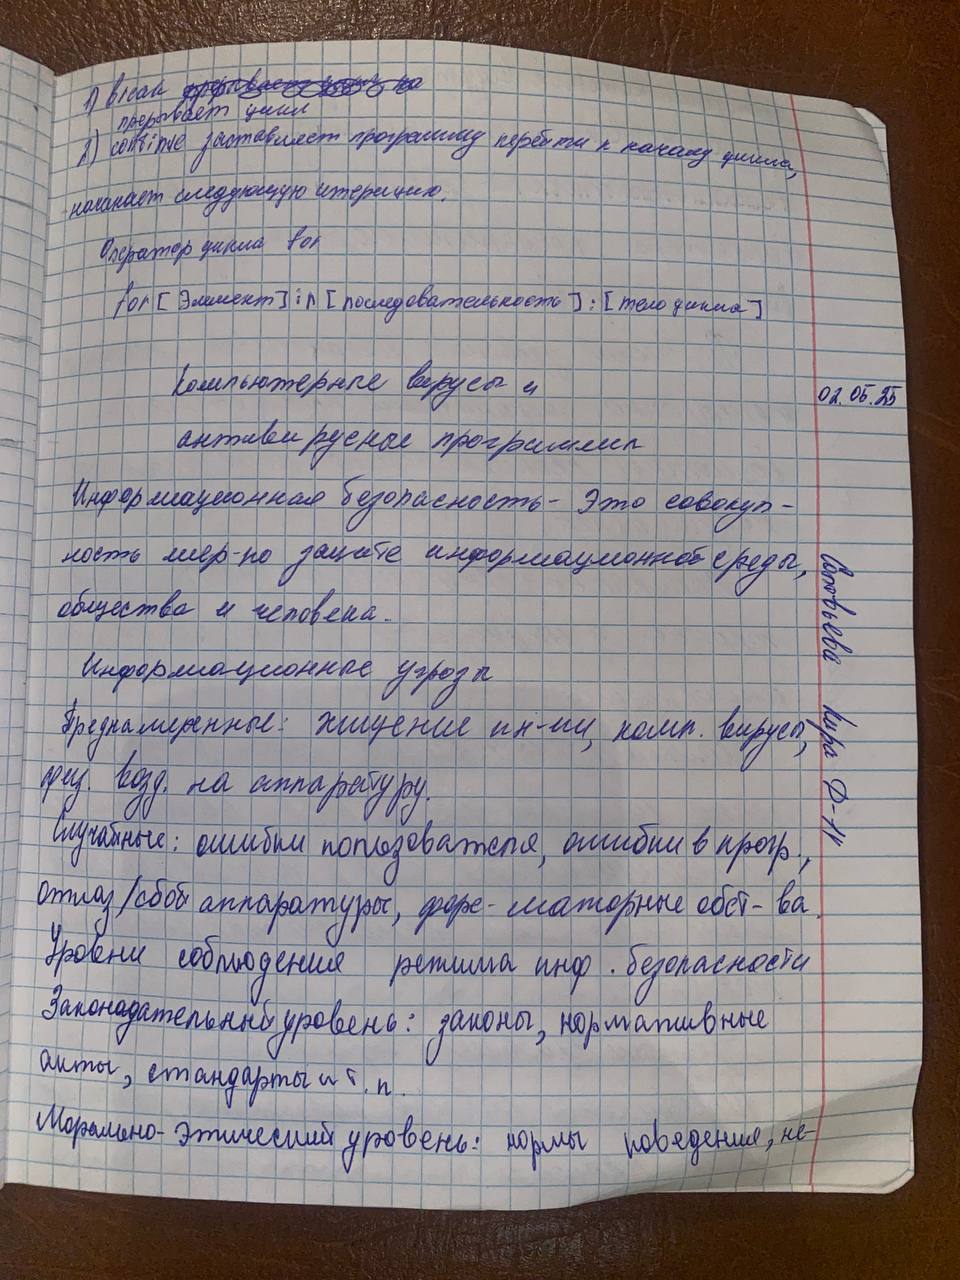 1) break
прерывает цикл
2) continue заставляет программу перейти к началу цикла,
начинает следующую итерацию.
Оператор цикла for
for [Элемент] in [последовательность] : [тело цикла]
Компьютерные вирусы и
антивирусные программы
02.05.25
Информационная безопасность - Это совокуп-
ность мер-по защите информационной среды,
общества и человека.
Информационные угрозы
Преднамеренные: хищение ин-ии, комп. вирусы,
физ. возд. на аппаратуру.
Случайные: ошибки пользователя, ошибки в прогр.,
отказ/сбой аппаратуры, форс-маторные обст-ва.
Уровени соблюдения режима инф. безопасности
Законодательный уровень: законы, нормативные
акты, стандарты и т.п.
Морально-этический уровень: нормы поведения, не-
Соловьева Кира Д-11